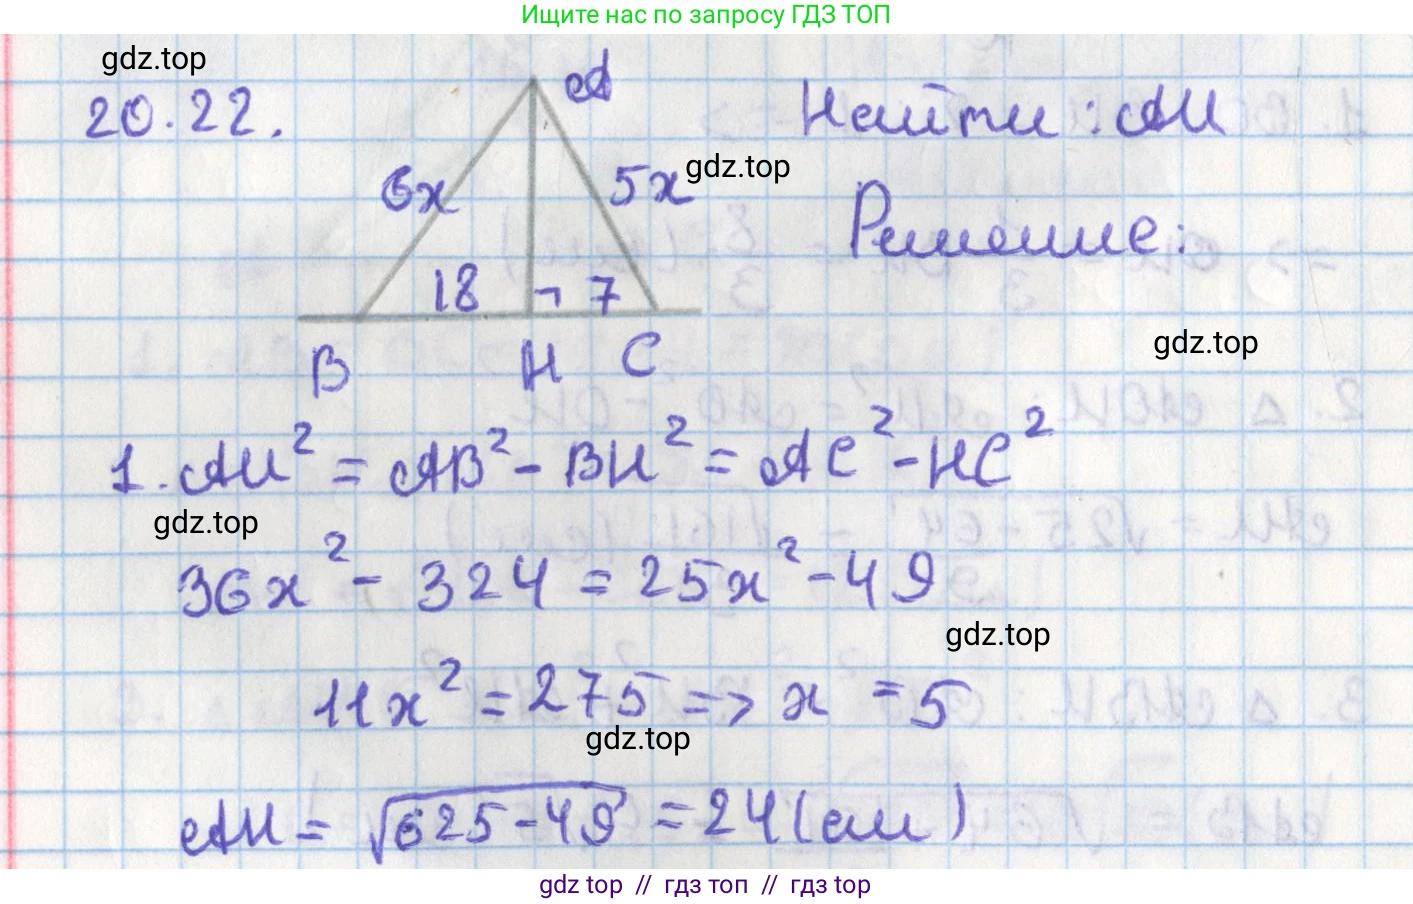 Ищите нас по запросу ГДЗ ТОП
gdz.top
20.22.
A
Найти: AH
6x
5x
gdz.top
Решение:
18
7
gdz.top
B
H
C
1. AH² = AB² - BH² = AC² - HC²
gdz.top
36x² - 324 = 25x² - 49
gdz.top
11x² = 275 => x = 5
gdz.top
AH = √625-49 = 24 (см)
gdz top // гдз топ // гдз top